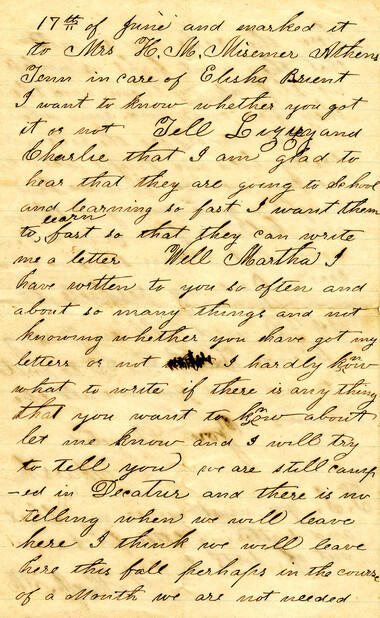 17th of June and marked it
to Mrs H. M. Misemer Athens
Tenn in care of Elisha Brient
I want to know whether you got
it or not Tell Lizzy and
Charlie that I am glad to
hear that they are going to School
and learning so fast I want them
to learn fast so that they can write
me a letter Well Martha I
have written to you so often and
about so many things and not
knowing whether you have got my
letters or not I hardly know
what to write if there is any thing
that you want to know about
let me know and I will try
to tell you we are still camp
-ed in Decatur and there is no
telling when we will leave
here I think we will leave
here this fall perhaps in the course
of a Month we are not needed